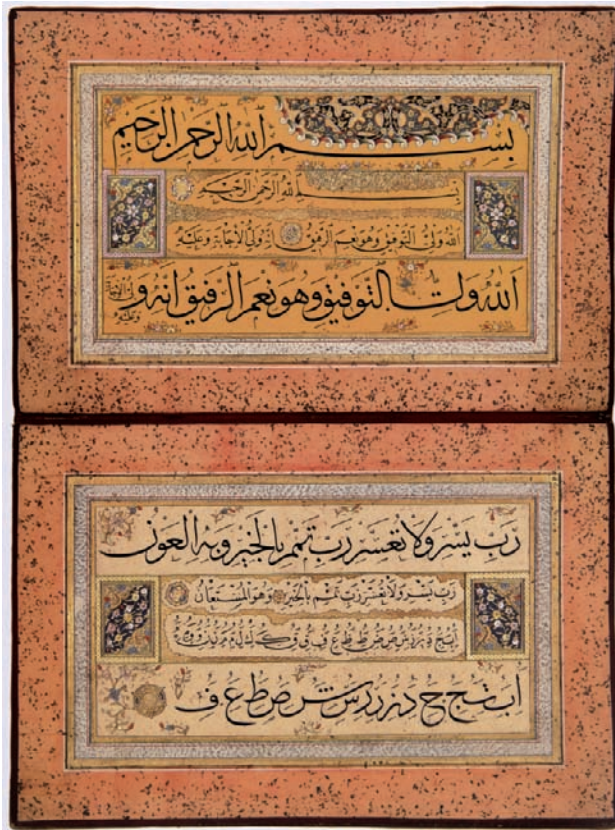 بسم الله الرحمن الرحيم
بسم الله الرحمن الرحيم
الله ولي التوفيق وهو نعم الرفيق انه ولي الاجابة وعليه
الله ولي التوفيق وهو نعم الرفيق انه و
رب يسر ولا تعسر رب تمم بالخير وبه العون
رب يسر ولا تعسر رب تمم بالخير وهو المستعان
ا ب ت ج ح د ز ر ر س ش ص ط ع ف